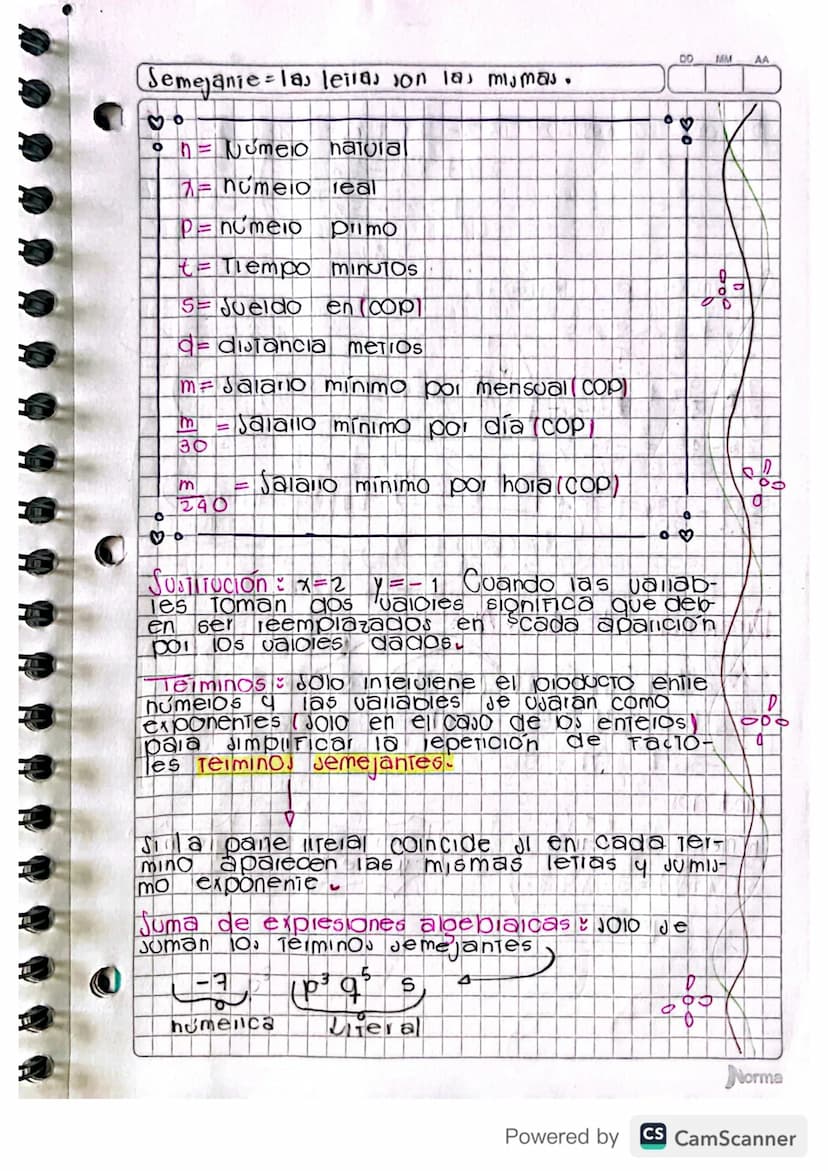 DD MM AA
Semejante = las letras son las mismas.
n = Número natural
x = número real
p = número primo
t = Tiempo minutos
s = sueldo en (COP)
d = distancia metros
m = salario mínimo por mensual (COP)
m/30 = salario mínimo por día (COP)
m/240 = salario minimo por hora (COP)
Sustitución : x=2 y=-1 Cuando las variab-
les toman dos valores significa que deb-
en ser reemplazados en cada aparición
por los valores dados.
Términos : solo interviene el producto entre
números y las variables se usaran como
exponentes (solo en el caso de los enteros)
para simplificar la repetición de facto-
res terminos semejantes.
Si la parte literal coincide si en cada ter-
mino aparecen las mismas letras y su mis-
mo exponente.
Suma de expresiones algebraicas : solo se
suman los terminos semejantes
-7 p³ q⁵ s
númerica Literal
Norma
Powered by CS CamScanner